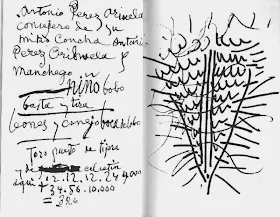 Antonio Perez Orihuela
consejero de su
mita Concha Antonio
Perez Orihuela y
Manchego
niño bobo
gasta y tira
leones y conejo boca de lobo
Toro puesto se tijre
y he
aqui 12.12.12.24.4.000
+ 34.56.10.000
=